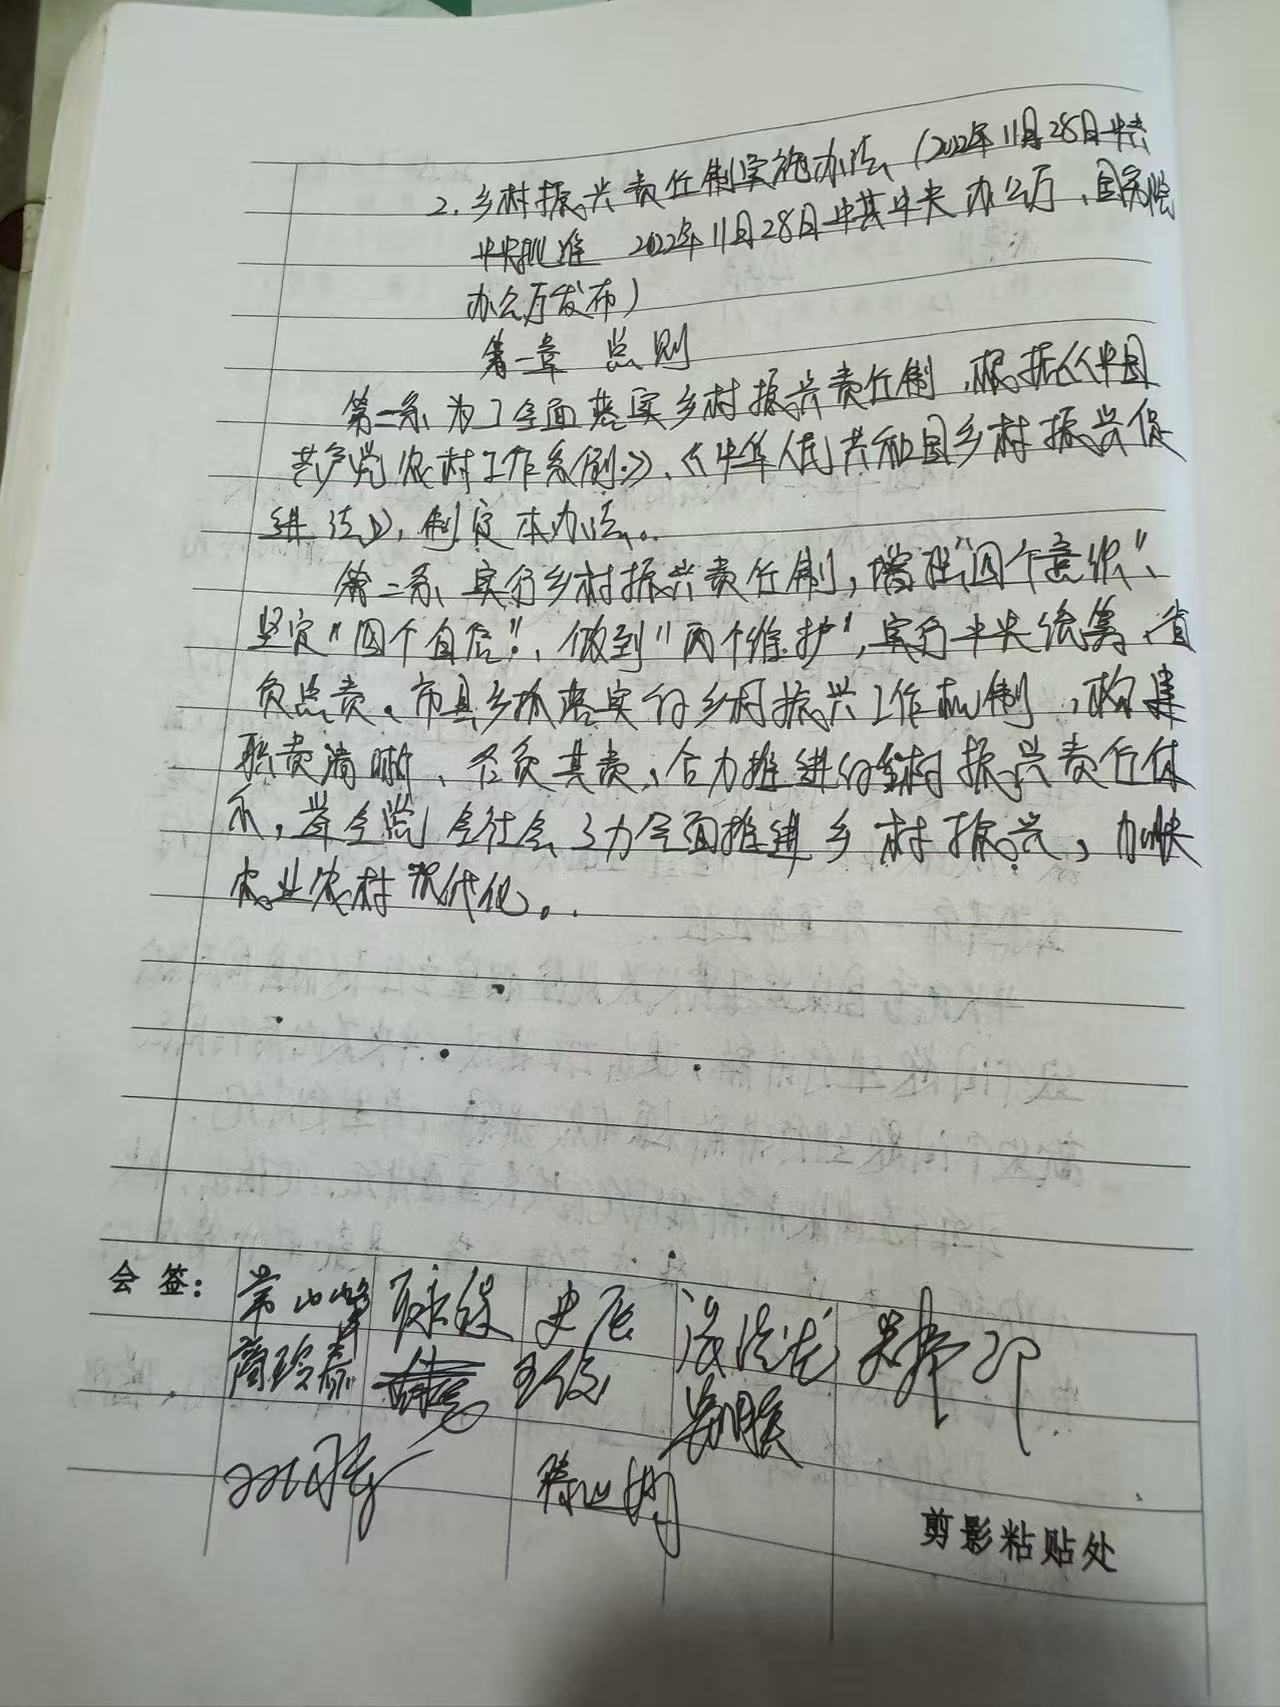 2.乡村振兴责任制实施办法(2022年11月28日中共
中央批准 2022年11月28日中共中央办公厅、国务院
办公厅发布)
第一章 总则
第一条、为了全面落实乡村振兴责任制,根据《中国
共产党农村工作条例》、《中华人民共和国乡村振兴促
进法》,制定本办法。
第二条、实行乡村振兴责任制,增强“四个意识”、
坚定“四个自信”、做到“两个维护”,实行中央统筹、省
负总责、市县乡抓落实的乡村振兴工作机制,构建
职责清晰、各负其责、合力推进的乡村振兴责任体
系,举全党全社会之力全面推进乡村振兴,加快
农业农村现代化。
会签:
史
王俊
剪影粘贴处